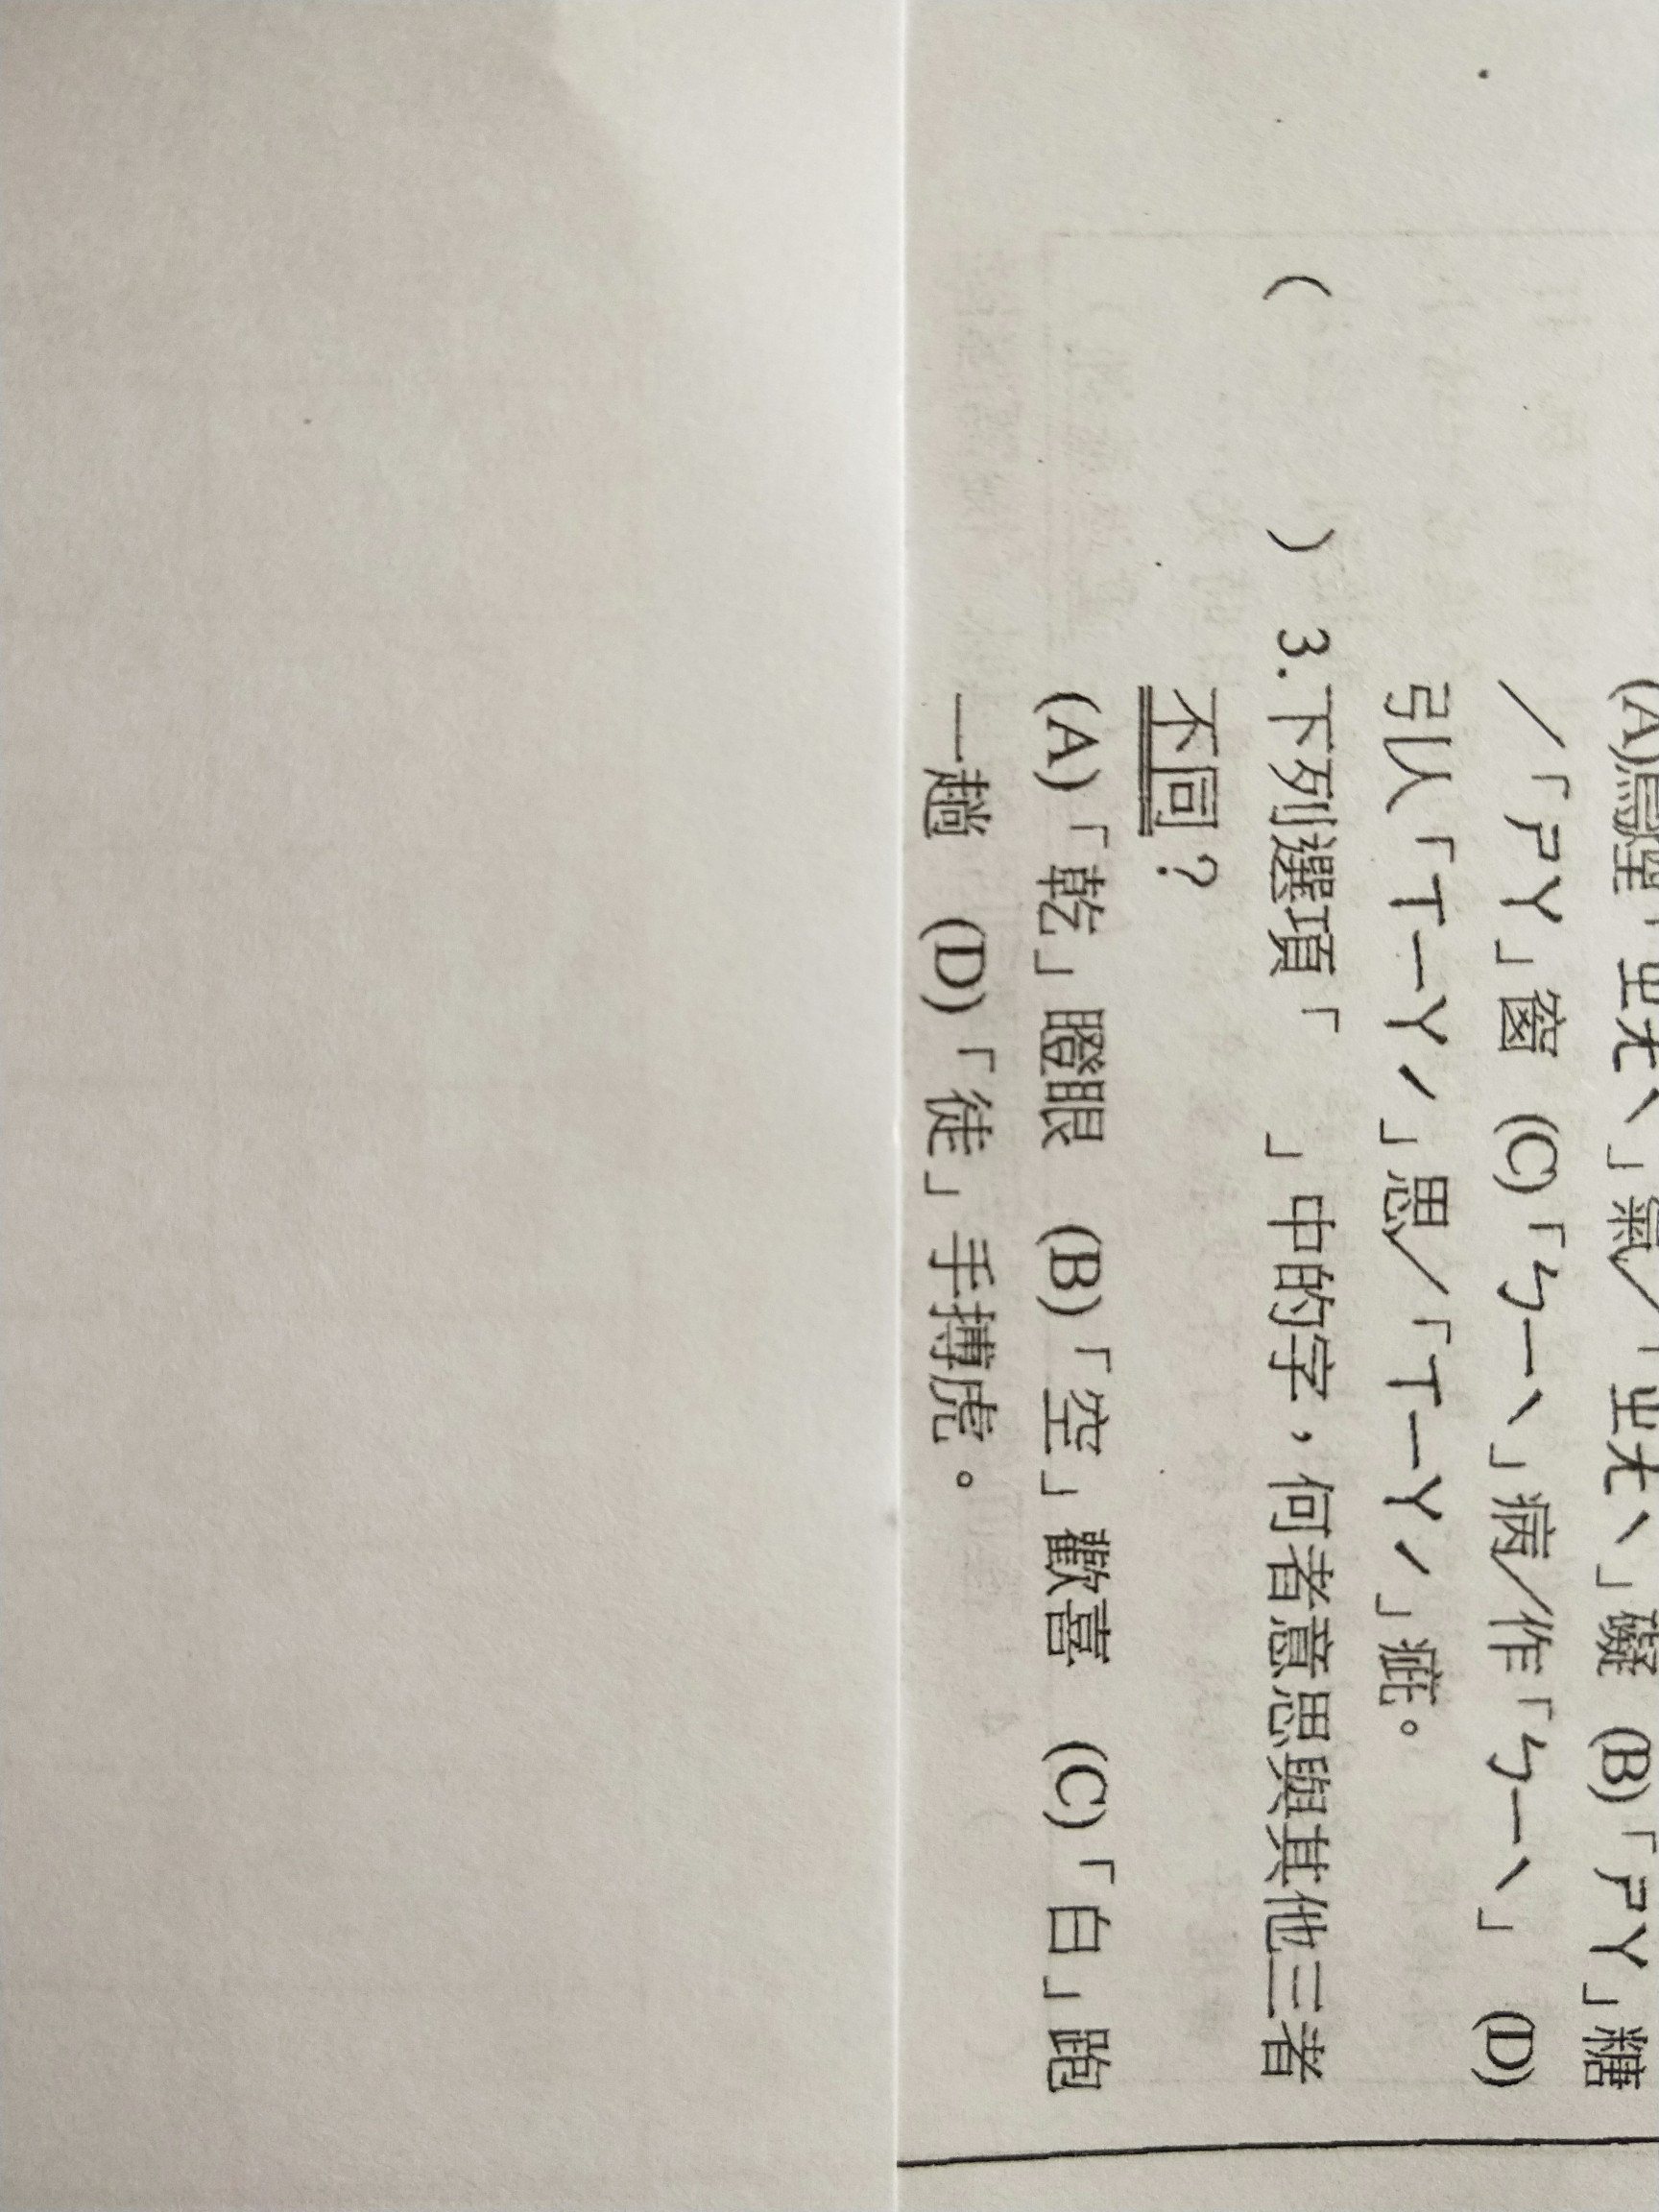 (A)窒「ㄓㄤˋ」氣／「ㄓㄤˋ」礙 (B)「ㄕㄚ」糖
／「ㄕㄚ」齒 (C)「ㄅㄧˋ」病／作「ㄅㄧˋ」 (D)
引人「ㄒㄧㄚˊ」思／「ㄒㄧㄚˊ」疵。
( ) 3.下列選項「 」中的字，何者意思與其他三者
不同？
(A)「乾」瞪眼 (B)「空」歡喜 (C)「白」跑
一趟 (D)「徒」手搏虎。